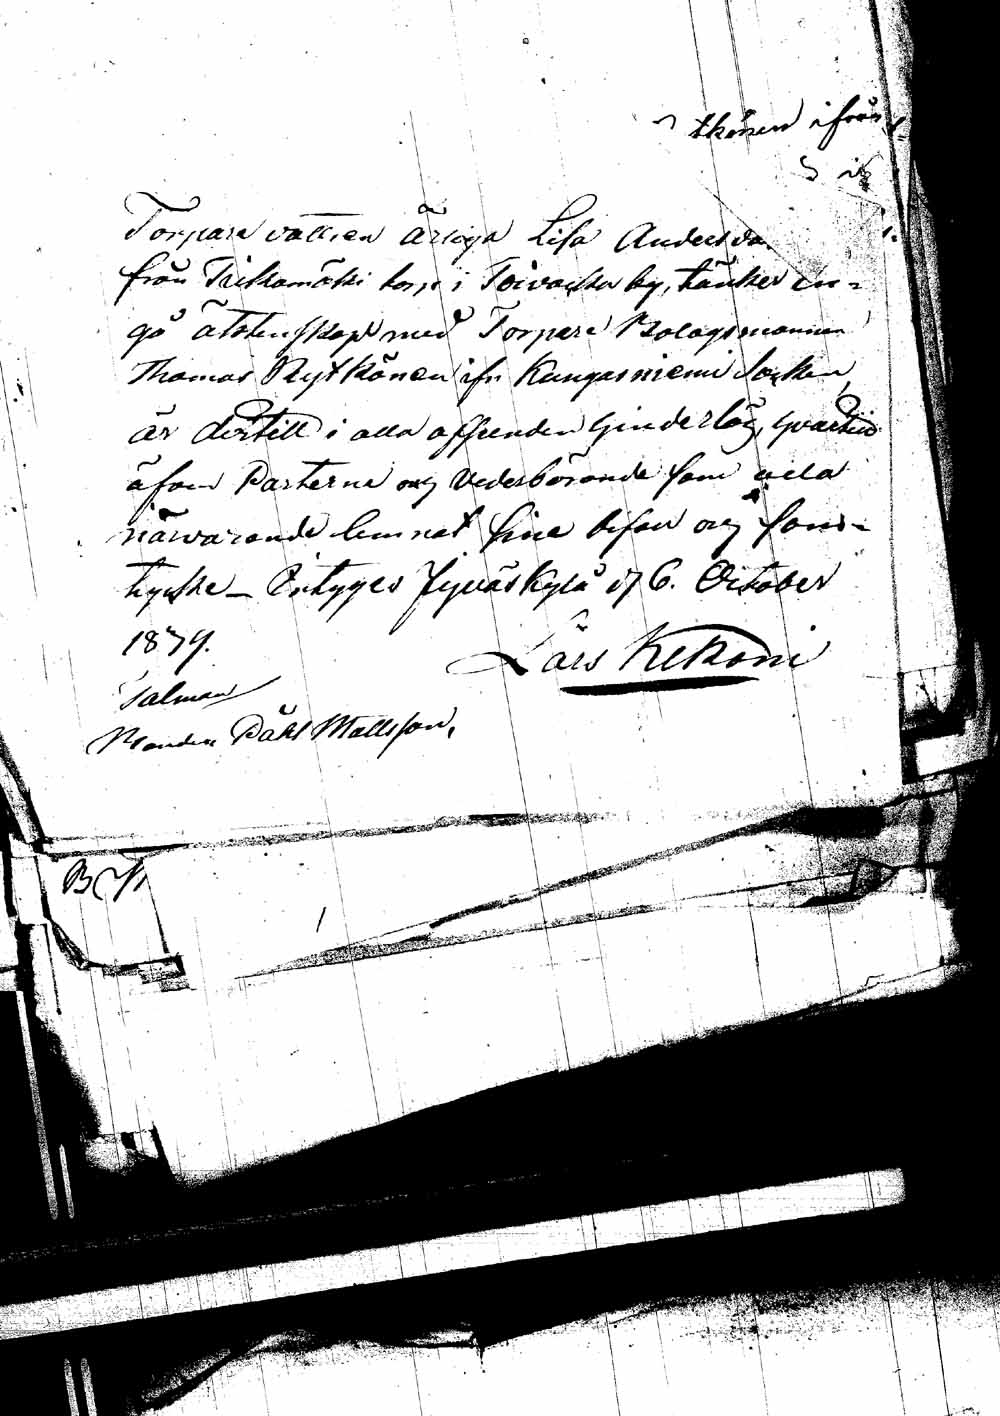 tkönen ifrån
Torpare vattien ärliga Lisa Andersdo.
från Triskomäki torp i Toivacka by, tänker in-
gå äktenskap med Torpare Bolagsmannen
Thomas Rytkönen ifr Kangasniemi Socken
är dertill i alla affrenden hinderlög,
äfven Parterne och Vederbörande som vela
närvarande lemnat sine bifan och sam-
tycke – Intyges Jyväskylä d 6. October
1879.
Lars Kekoni
Talman
Bonden Påhl Mattsson.